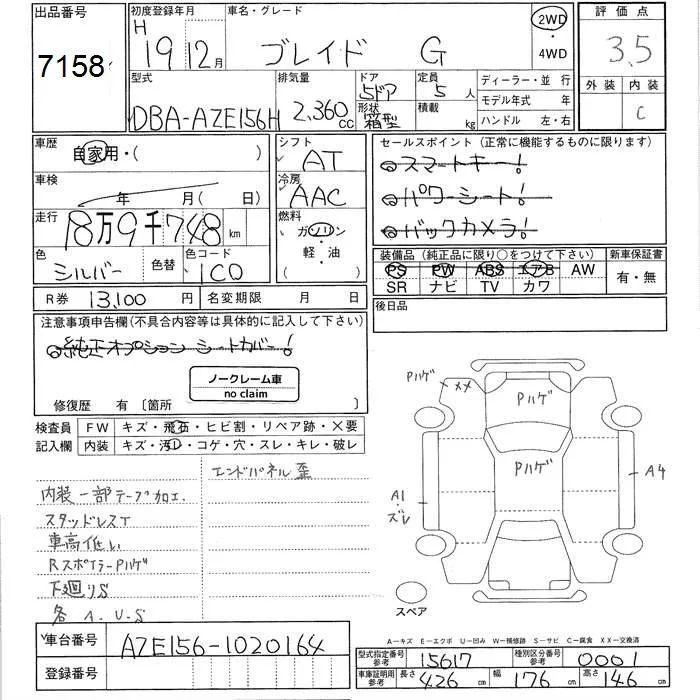 出品番号
7158
初度登録年月
H 19 12月
車名・グレード
ブレイド G
2WD
・
4WD
評価点
3.5
外装 内装
C
型式
DBA-AZE156H
排気量
2,360cc
ドア
5ドア
形状
箱型
定員
5人
積載
kg
ディーラー・並 行
モデル年式 年
ハンドル 左・右
車歴
自家用・( )
車検
年 月( 日)
走行
18万9千748km
色
シルバー
色替
色コード
1C0
シフト
AT
冷房
AAC
燃料
ガソリン
・
軽・油
( )
セールスポイント (正常に機能するものに限ります)
◎スマートキー!
◎パワーシート!
◎バックカメラ!
装備品 (純正品に限り○をつけて下さい)
PS PW ABS エアB AW
SR ナビ TV カワ
新車保証書
有・無
R券 13,100円
名変期限 月 日
後日品
注意事項申告欄(不具合内容等は具体的に記入して下さい)
◎純正オプション シートカバー!
ノークレーム車
no claim
修復歴 有〔箇所 〕
検査員 FW キズ・飛石・ヒビ割・リペア跡・×要
記入欄 内装 キズ・汚レ・コゲ・穴・スレ・キレ・破レ
エンドパネル 歪
内装一部テープ加工.
スタッドレスT
車高低い
RスポイラーPハゲ
下廻りS
各A.U.S
Pハゲ
××
Pハゲ
Pハゲ
A1
・
ズレ
A4
スペア
A－キズ E－エクボ U－凹み W－補修跡 S－サビ C－腐食 XX－交換済
車台番号
AZE156-1020164
登録番号
型式指定番号
参考
15617
種別区分番号
参考
0001
車庫証明用
参考
長さ 426cm
幅 176cm
高さ 146cm